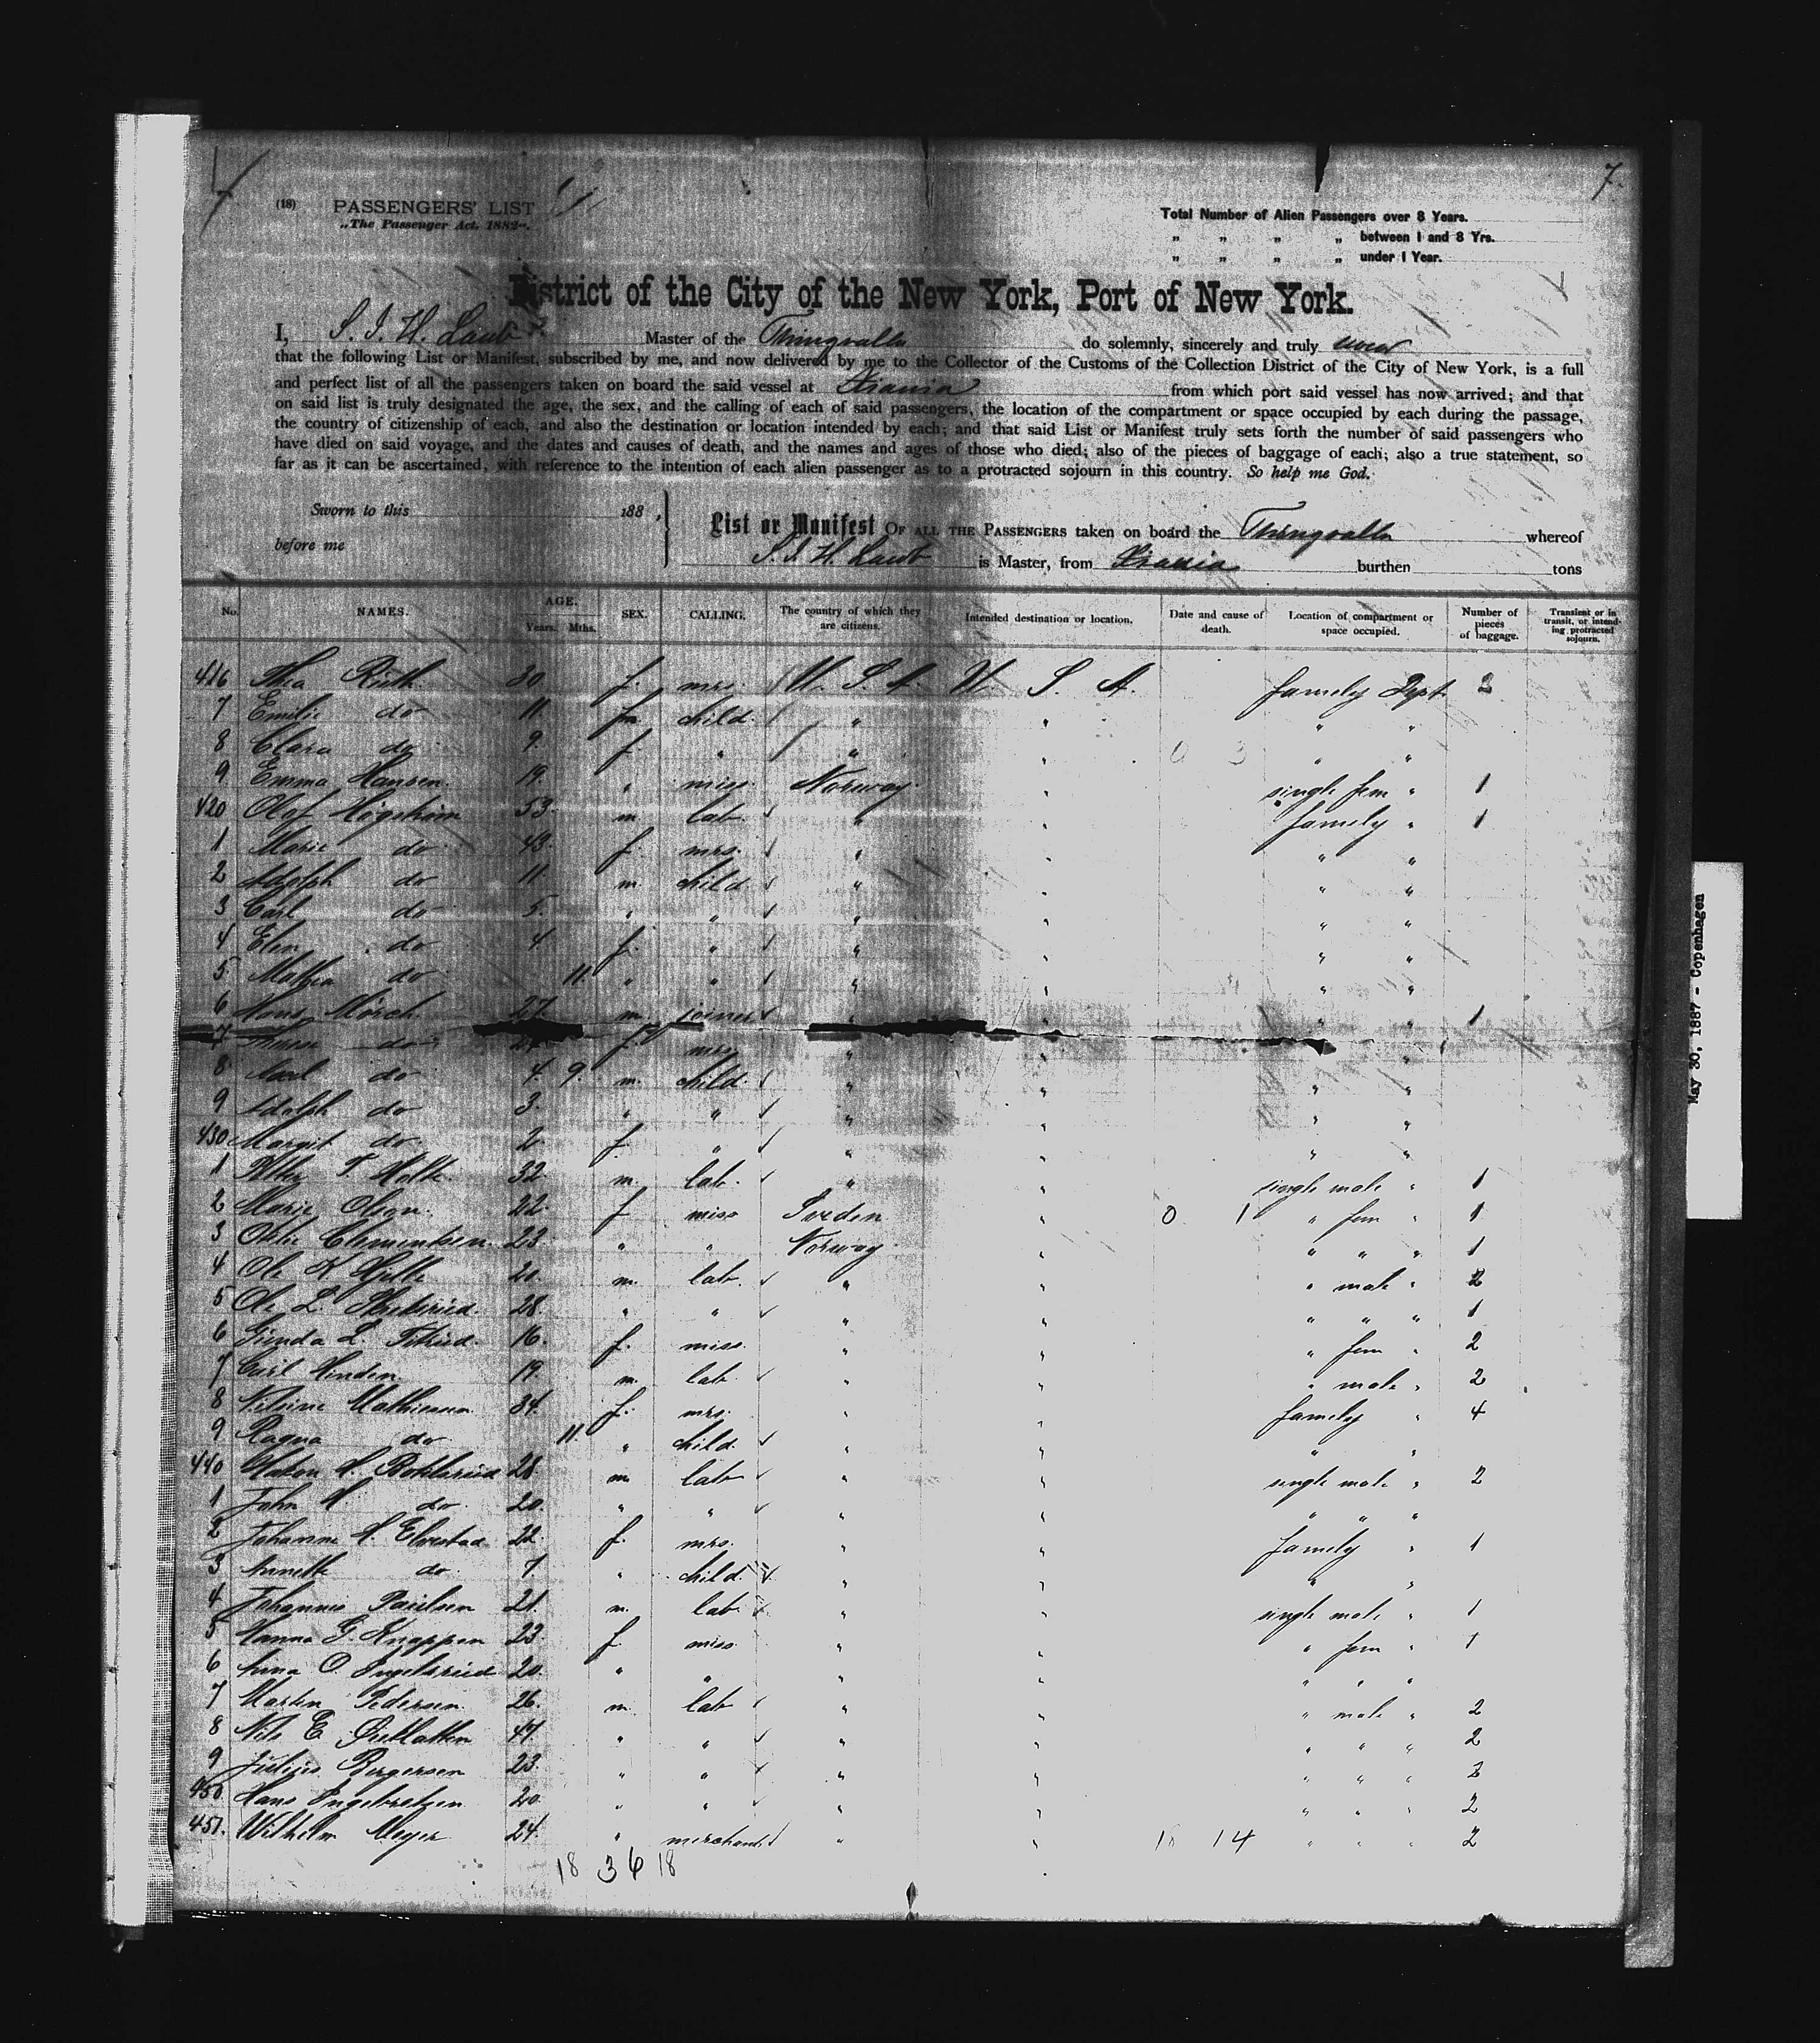 7 7.
(18) PASSENGERS' LIST
„The Passenger Act. 1882“.
Total Number of Alien Passengers over 8 Years.
„ „ „ „ between 1 and 8 Yrs.
„ „ „ „ under 1 Year.
District of the City of the New York, Port of New York.
I, S. J. H. Laub Master of the Thingvalla do solemnly, sincerely and truly swear
that the following List or Manifest, subscribed by me, and now delivered by me to the Collector of the Customs of the Collection District of the City of New York, is a full
and perfect list of all the passengers taken on board the said vessel at Xiania from which port said vessel has now arrived; and that
on said list is truly designated the age, the sex, and the calling of each of said passengers, the location of the compartment or space occupied by each during the passage,
the country of citizenship of each, and also the destination or location intended by each; and that said List or Manifest truly sets forth the number of said passengers who
have died on said voyage, and the dates and causes of death, and the names and ages of those who died; also of the pieces of baggage of each; also a true statement, so
far as it can be ascertained, with reference to the intention of each alien passenger as to a protracted sojourn in this country. So help me God.
Sworn to this 188 ,
before me
List or Manifest OF ALL THE PASSENGERS taken on board the Thingvalla whereof
S. J. H. Laub is Master, from Xiania burthen tons
No. NAMES. AGE. Years. Mths. SEX. CALLING. The country of which they are citizens. Intended destination or location. Date and cause of death. Location of compartment or space occupied. Number of pieces of baggage. Transient or in transit, or intending protracted sojourn.
416 Thea 30 f. mrs. U. S. A. U. S. A. family Dept 2
7 Emilie do 11. child. " " " "
8 Clara do 9. f " " " 0 3 " "
9 Emma Hansen. 19. " miss. Norway. " single fem " 1
420 Olof Högström 53. m lab. " " family " 1
1 Marie do 43. f. mrs. " " " "
2 Adolph do 11. m. child. " " " "
3 Carl do 5. " " " " " "
4 Elen do 4 f. " " " " "
5. Mathea do 11. " " " " " "
6 Hans Mörch. 27. m. joiner " " " " 1
7 do f. mrs. " " "
8. Axel do 4. 9. m. child. " " " "
9 Adolph do 3. " " " " " "
430 Margit do 2 f. " " " " "
1 T. Holte 32. m. lab. " " single male " 1
2 Marie Olson. 22. f miss Sveden " 0 1 " fem " 1
3 Clementsen. 23. " " Norway " " " " 1
4 Ole K. Hjelle 20. m. lab. " " " male " 2
5 Ole L. 28. " " " " " " " 1
6 L. 16. f. miss. " " " fem " 2
7 Carl Hinden 19. m. lab. " " " male " 2
8 Nilsine Mathiesen 34. f. mrs. " " family " 4
9 Ragna do 11. " child. " " " "
440 H. 28. m. lab " " single male " 2
1 John H. do 20. " " " " " " "
2 Johanne H. Elvestad 22. f. mrs. " " family " 1
3 Annette do 7 " child. " " " "
4 Johannes Paulsen 21. m. lab. " " single male " 1
5 Hanna G. Knappen 23. f. miss " " " fem " 1
6 Anna O. 20. " " " " " " "
7 Martin Pedersen 26. m. lab " " " male " 2
8 Nils E. 47. " " " " " " " 2
9 Julius Bergersen 23. " " " " " " " 2
450. Hans Engebretzen 20. " " " " " " " 2
451. Wilhelm Meyer 24. " merchant " " 14 " " " 2
18 36 18
May 30, 1887 - Copenhagen